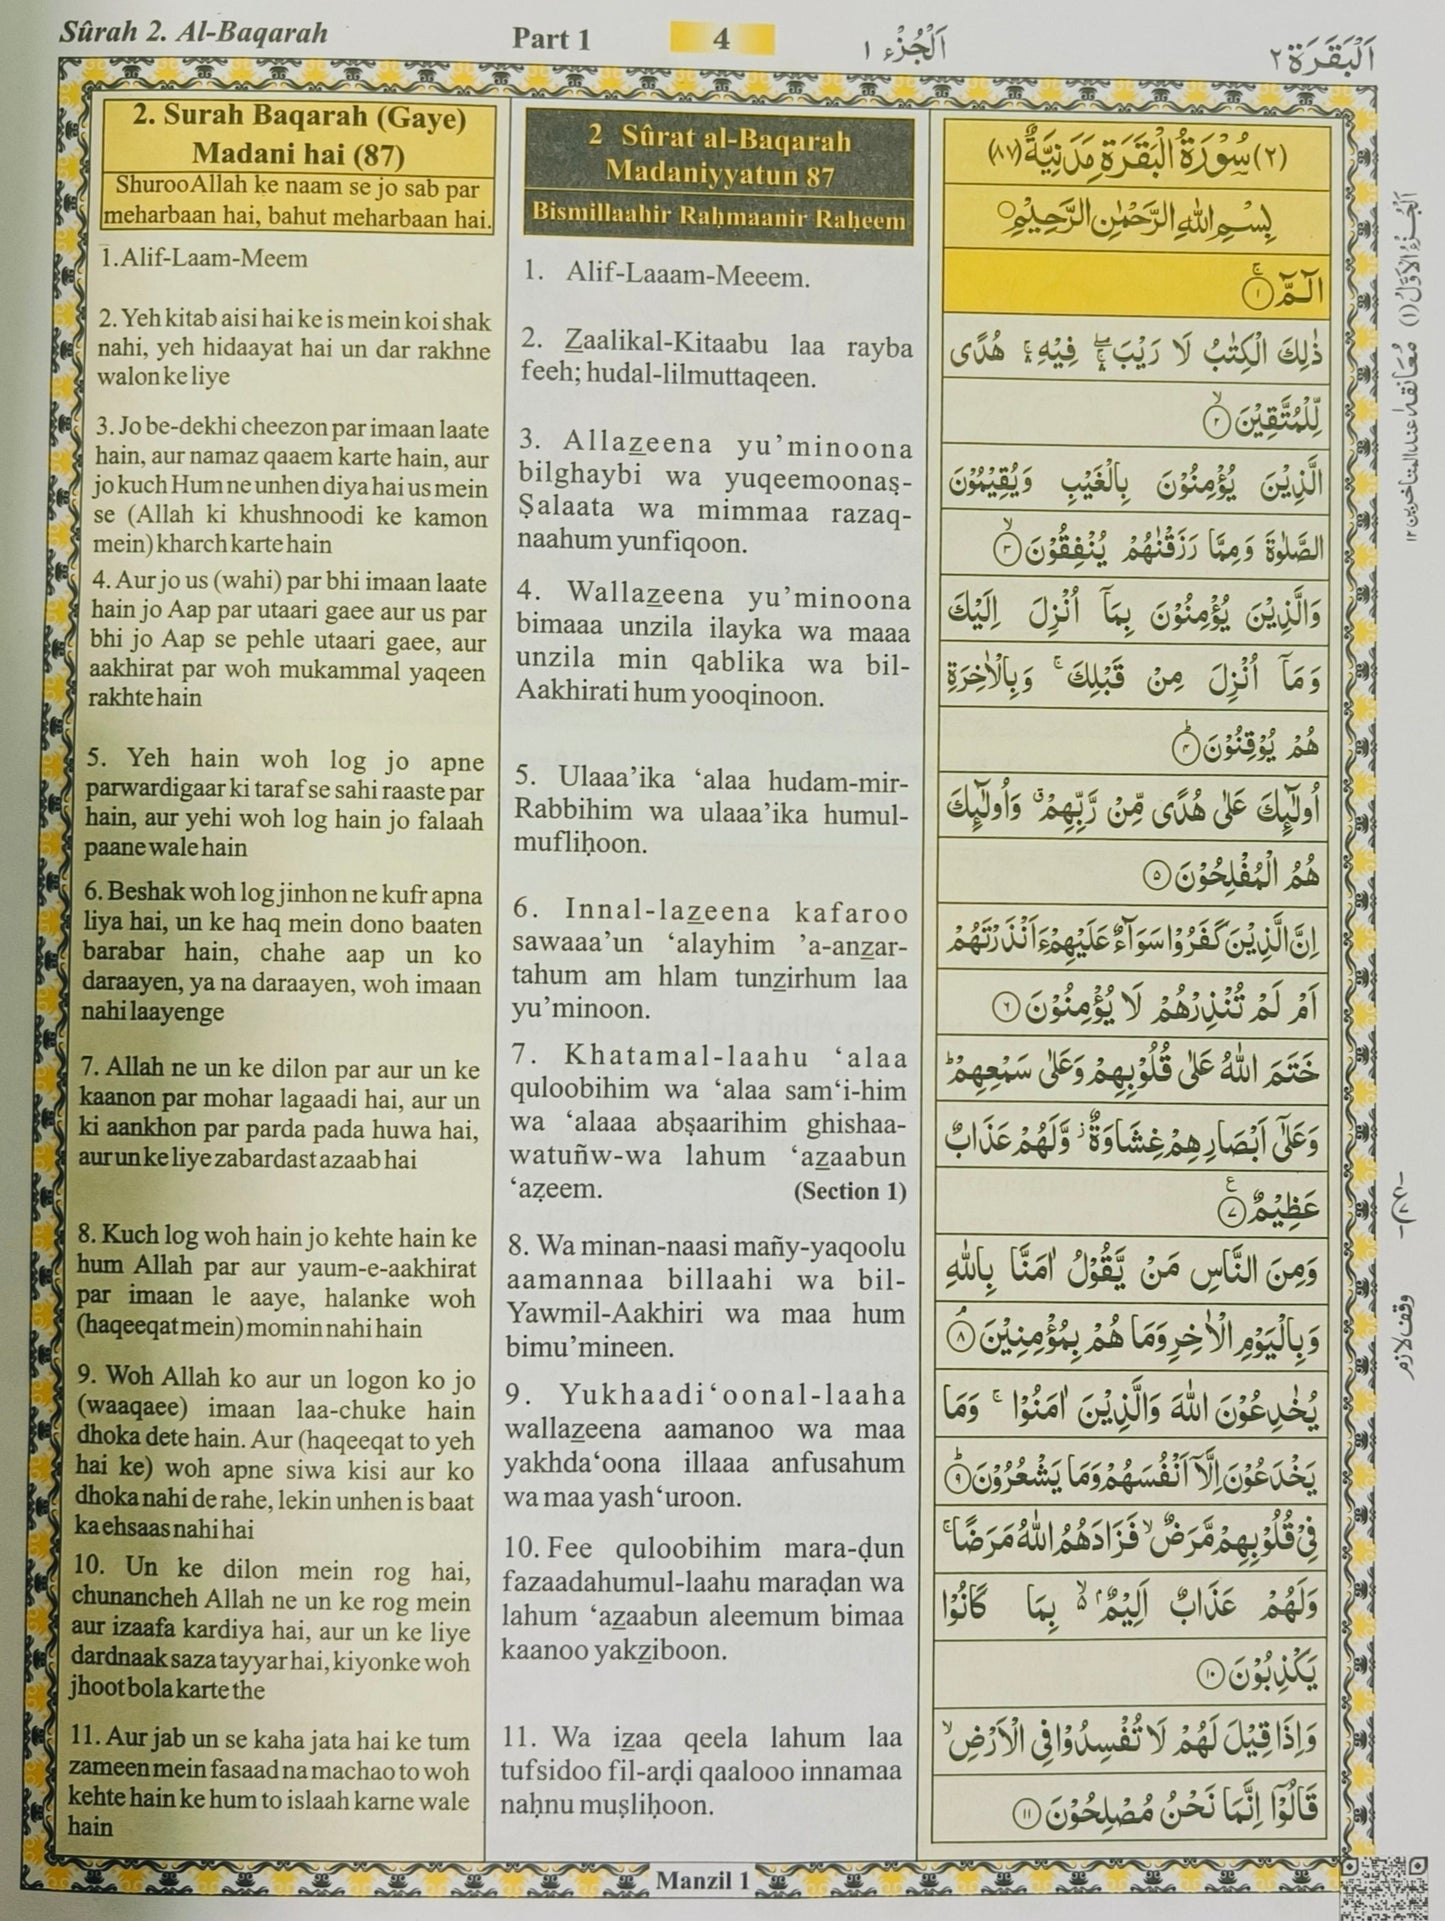 Sûrah 2. Al-Baqarah
Part 1
4
اَلْجُزْء ١
اَلْبَقَرَة ٢
2. Surah Baqarah (Gaye)
Madani hai (87)
Shuroo Allah ke naam se jo sab par
meharbaan hai, bahut meharbaan hai.
1. Alif-Laam-Meem
2. Yeh kitab aisi hai ke is mein koi shak
nahi, yeh hidaayat hai un dar rakhne
walon ke liye
3. Jo be-dekhi cheezon par imaan laate
hain, aur namaz qaaem karte hain, aur
jo kuch Hum ne unhen diya hai us mein
se (Allah ki khushnoodi ke kamon
mein) kharch karte hain
4. Aur jo us (wahi) par bhi imaan laate
hain jo Aap par utaari gaee aur us par
bhi jo Aap se pehle utaari gaee, aur
aakhirat par woh mukammal yaqeen
rakhte hain
5. Yeh hain woh log jo apne
parwardigaar ki taraf se sahi raaste par
hain, aur yehi woh log hain jo falaah
paane wale hain
6. Beshak woh log jinhon ne kufr apna
liya hai, un ke haq mein dono baaten
barabar hain, chahe aap un ko
daraayen, ya na daraayen, woh imaan
nahi laayenge
7. Allah ne un ke dilon par aur un ke
kaanon par mohar lagaadi hai, aur un
ki aankhon par parda pada huwa hai,
aur un ke liye zabardast azaab hai
8. Kuch log woh hain jo kehte hain ke
hum Allah par aur yaum-e-aakhirat
par imaan le aaye, halanke woh
(haqeeqat mein) momin nahi hain
9. Woh Allah ko aur un logon ko jo
(waaqaee) imaan laa-chuke hain
dhoka dete hain. Aur (haqeeqat to yeh
hai ke) woh apne siwa kisi aur ko
dhoka nahi de rahe, lekin unhen is baat
ka ehsaas nahi hai
10. Un ke dilon mein rog hai,
chunancheh Allah ne un ke rog mein
aur izaafa kardiya hai, aur un ke liye
dardnaak saza tayyar hai, kiyonke woh
jhoot bola karte the
11. Aur jab un se kaha jata hai ke tum
zameen mein fasaad na machao to woh
kehte hain ke hum to islaah karne wale
hain
2 Sûrat al-Baqarah
Madaniyyatun 87
Bismillaahir Raḥmaanir Raheem
1. Alif-Laaam-Meeem.
2. Zaalikal-Kitaabu laa rayba
feeh; hudal-lilmuttaqeen.
3. Allazeena yu’minoona
bilghaybi wa yuqeemoonaṣ-
Ṣalaata wa mimmaa razaq-
naahum yunfiqoon.
4. Wallazeena yu’minoona
bimaaa unzila ilayka wa maaa
unzila min qablika wa bil-
Aakhirati hum yooqinoon.
5. Ulaaa’ika ‘alaa hudam-mir-
Rabbihim wa ulaaa’ika humul-
mufliḥoon.
6. Innal-lazeena kafaroo
sawaaa’un ‘alayhim ’a-anzar-
tahum am hlam tunzirhum laa
yu’minoon.
7. Khatamal-laahu ‘alaa
quloobihim wa ‘alaa sam‘i-him
wa ‘alaaa abṣaarihim ghishaa-
watuñw-wa lahum ‘azaabun
‘aẓeem. (Section 1)
8. Wa minan-naasi mañy-yaqoolu
aamannaa billaahi wa bil-
Yawmil-Aakhiri wa maa hum
bimu’mineen.
9. Yukhaadi‘oonal-laaha
wallazeena aamanoo wa maa
yakhda‘oona illaaa anfusahum
wa maa yash‘uroon.
10. Fee quloobihim mara-ḍun
fazaadahumul-laahu maraḍan wa
lahum ‘azaabun aleemum bimaa
kaanoo yakziboon.
11. Wa izaa qeela lahum laa
tufsidoo fil-arḍi qaalooo innamaa
naḥnu muṣliḥoon.
(٢) سُوْرَةُ الْبَقَرَةِ مَدَنِيَّةٌ (٨٧)
بِسْمِ اللّٰهِ الرَّحْمٰنِ الرَّحِيْمِ ○
الٓمّٓ ۚ ١
ذٰلِكَ الْكِتٰبُ لَا رَيْبَ ۛۖ فِيْهِ ۛۚ هُدًى
لِّلْمُتَّقِيْنَ ۙ ٢
الَّذِيْنَ يُؤْمِنُوْنَ بِالْغَيْبِ وَيُقِيْمُوْنَ
الصَّلٰوةَ وَمِمَّا رَزَقْنٰهُمْ يُنْفِقُوْنَ ۙ ٣
وَالَّذِيْنَ يُؤْمِنُوْنَ بِمَآ اُنْزِلَ اِلَيْكَ
وَمَآ اُنْزِلَ مِنْ قَبْلِكَ ۚ وَبِالْاٰخِرَةِ
هُمْ يُوْقِنُوْنَ ؕ ٤
اُولٰٓئِكَ عَلٰى هُدًى مِّنْ رَّبِّهِمْ ۗ وَاُولٰٓئِكَ
هُمُ الْمُفْلِحُوْنَ ٥
اِنَّ الَّذِيْنَ كَفَرُوْا سَوَآءٌ عَلَيْهِمْ ءَاَنْذَرْتَهُمْ
اَمْ لَمْ تُنْذِرْهُمْ لَا يُؤْمِنُوْنَ ٦
خَتَمَ اللّٰهُ عَلٰى قُلُوْبِهِمْ وَعَلٰى سَمْعِهِمْ ؕ
وَعَلٰٓى اَبْصَارِهِمْ غِشَاوَةٌ ؗ وَّلَهُمْ عَذَابٌ
عَظِيْمٌ ٧ ع
وَمِنَ النَّاسِ مَنْ يَّقُوْلُ اٰمَنَّا بِاللّٰهِ
وَبِالْيَوْمِ الْاٰخِرِ وَمَا هُمْ بِمُؤْمِنِيْنَ ۘ ٨
يُخٰدِعُوْنَ اللّٰهَ وَالَّذِيْنَ اٰمَنُوْا ۚ وَمَا
يَخْدَعُوْنَ اِلَّآ اَنْفُسَهُمْ وَمَا يَشْعُرُوْنَ ؕ ٩
فِيْ قُلُوْبِهِمْ مَّرَضٌ ۙ فَزَادَهُمُ اللّٰهُ مَرَضًا ۚ
وَلَهُمْ عَذَابٌ اَلِيْمٌۢ ۙ۬ بِمَا كَانُوْا
يَكْذِبُوْنَ ١٠
وَاِذَا قِيْلَ لَهُمْ لَا تُفْسِدُوْا فِي الْاَرْضِ ۙ
قَالُوْٓا اِنَّمَا نَحْنُ مُصْلِحُوْنَ ١١
اَلْجُزْءُ الْاَوَّلُ (١)
مُعَانقة ١ عند المتأخرين ١٢
وقف لازم
Manzil 1